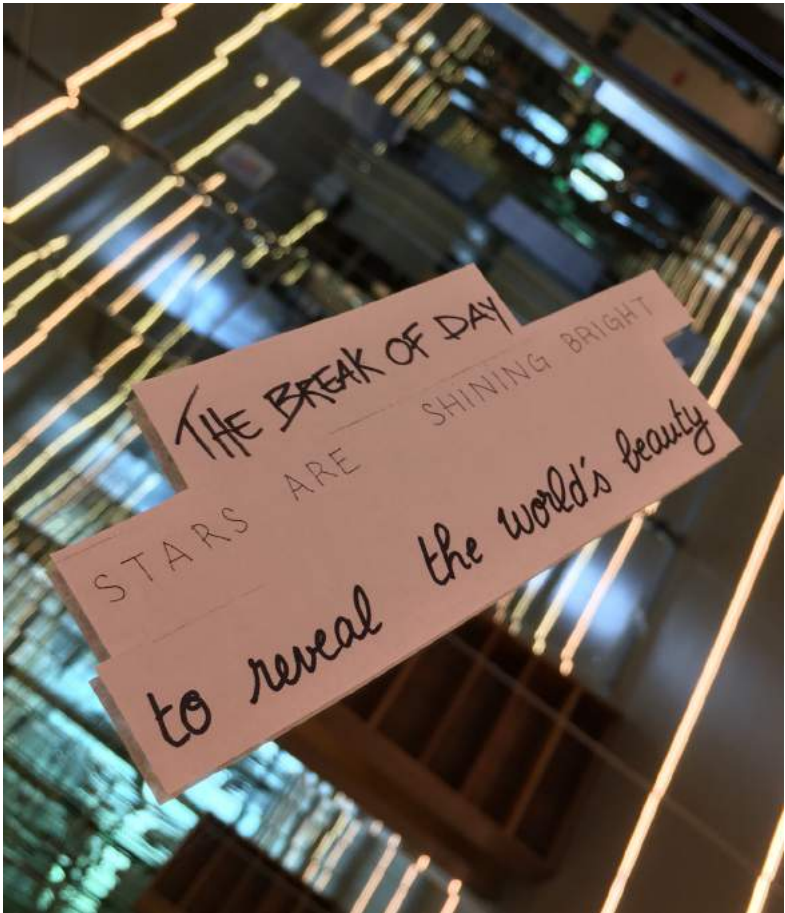 THE BREAK OF DAY
STARS ARE SHINING BRIGHT
to reveal the world's beauty